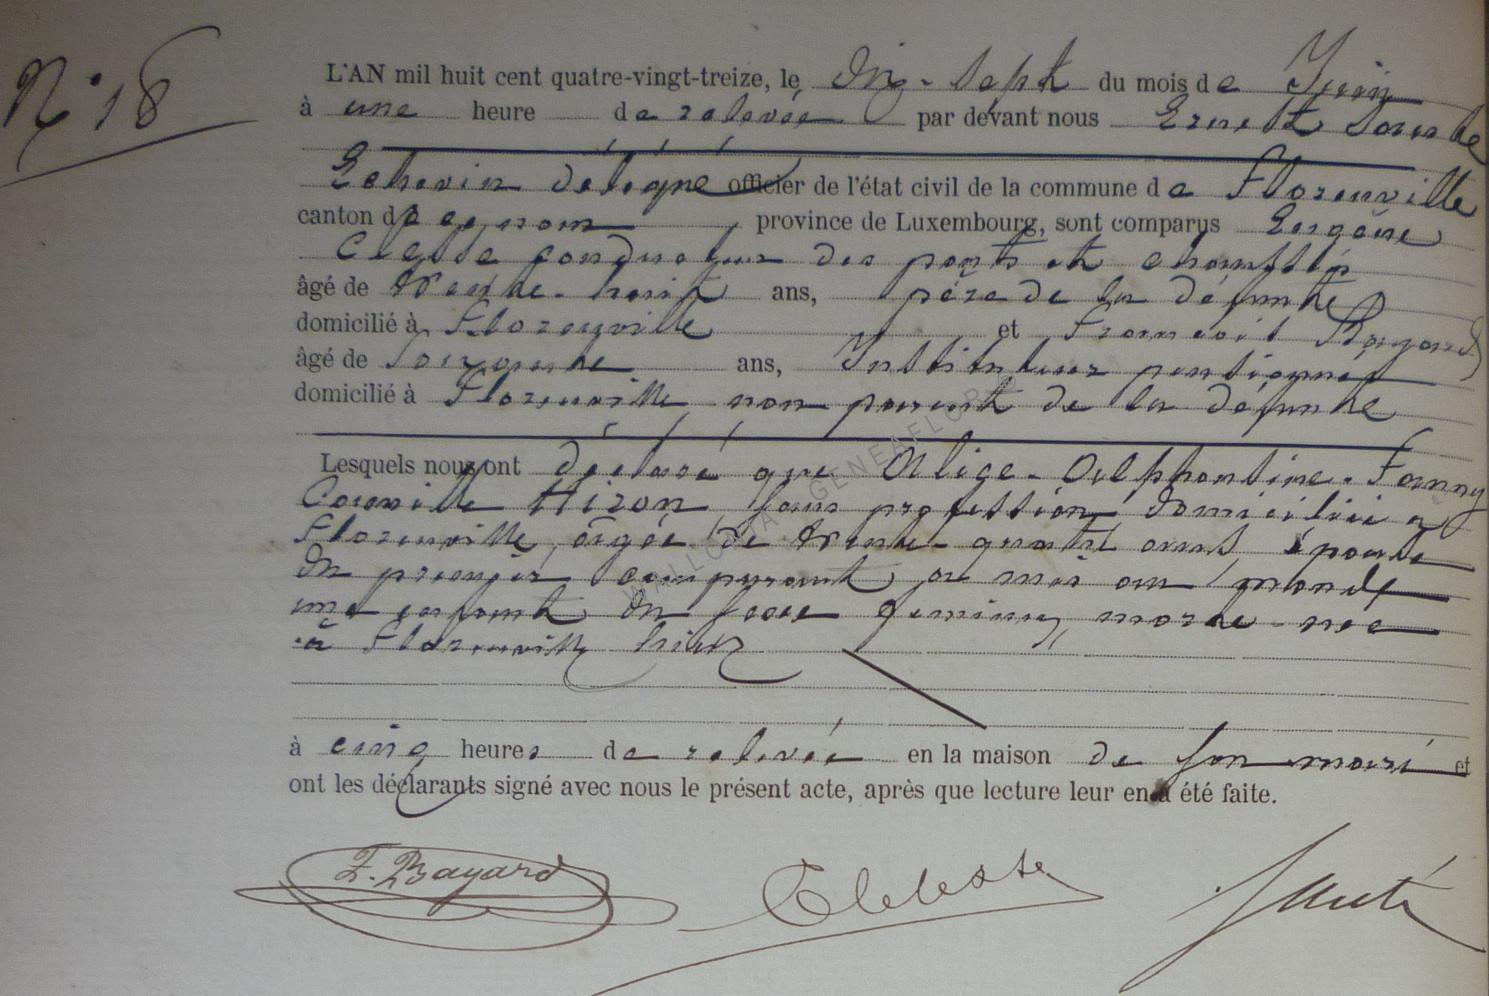 N° 18
L'AN mil huit cent quatre-vingt-treize, le dix-sept du mois de Juin
à une heure de relevée par devant nous Ernest
Echevin délégué officier de l'état civil de la commune de Florenville
canton de ce nom province de Luxembourg, sont comparus Eugène
conducteur des ponts et chaussées
âgé de trente-huit ans, père de la défunte
domicilié à Florenville et François Bayard
âgé de soixante ans, Instituteur pensionné
domicilié à Florenville, non parent de la défunte
Lesquels nous ont déclaré que Alice-Alphonsine-Fanny
Camille Hiron sans profession domiciliée à
Florenville, âgée de trente-quatre ans, épouse
du premier comparant, a mis au monde
une enfant du sexe féminin, morte-née
à Florenville hier
à cinq heures de relevée en la maison de son mari et
ont les déclarants signé avec nous le présent acte, après que lecture leur en a été faite.
F. Bayard
WALLONIA - GENEAFLOR